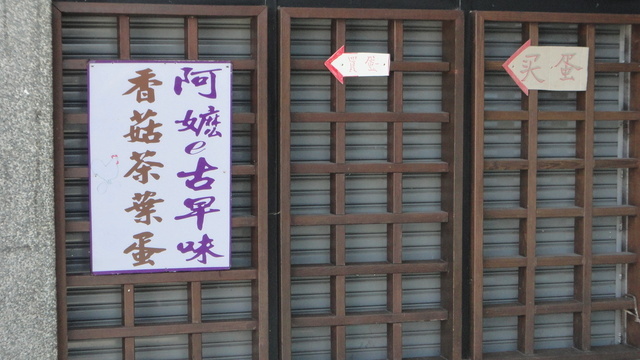 阿嬷e古早味
香菇茶葉蛋
買蛋
买蛋